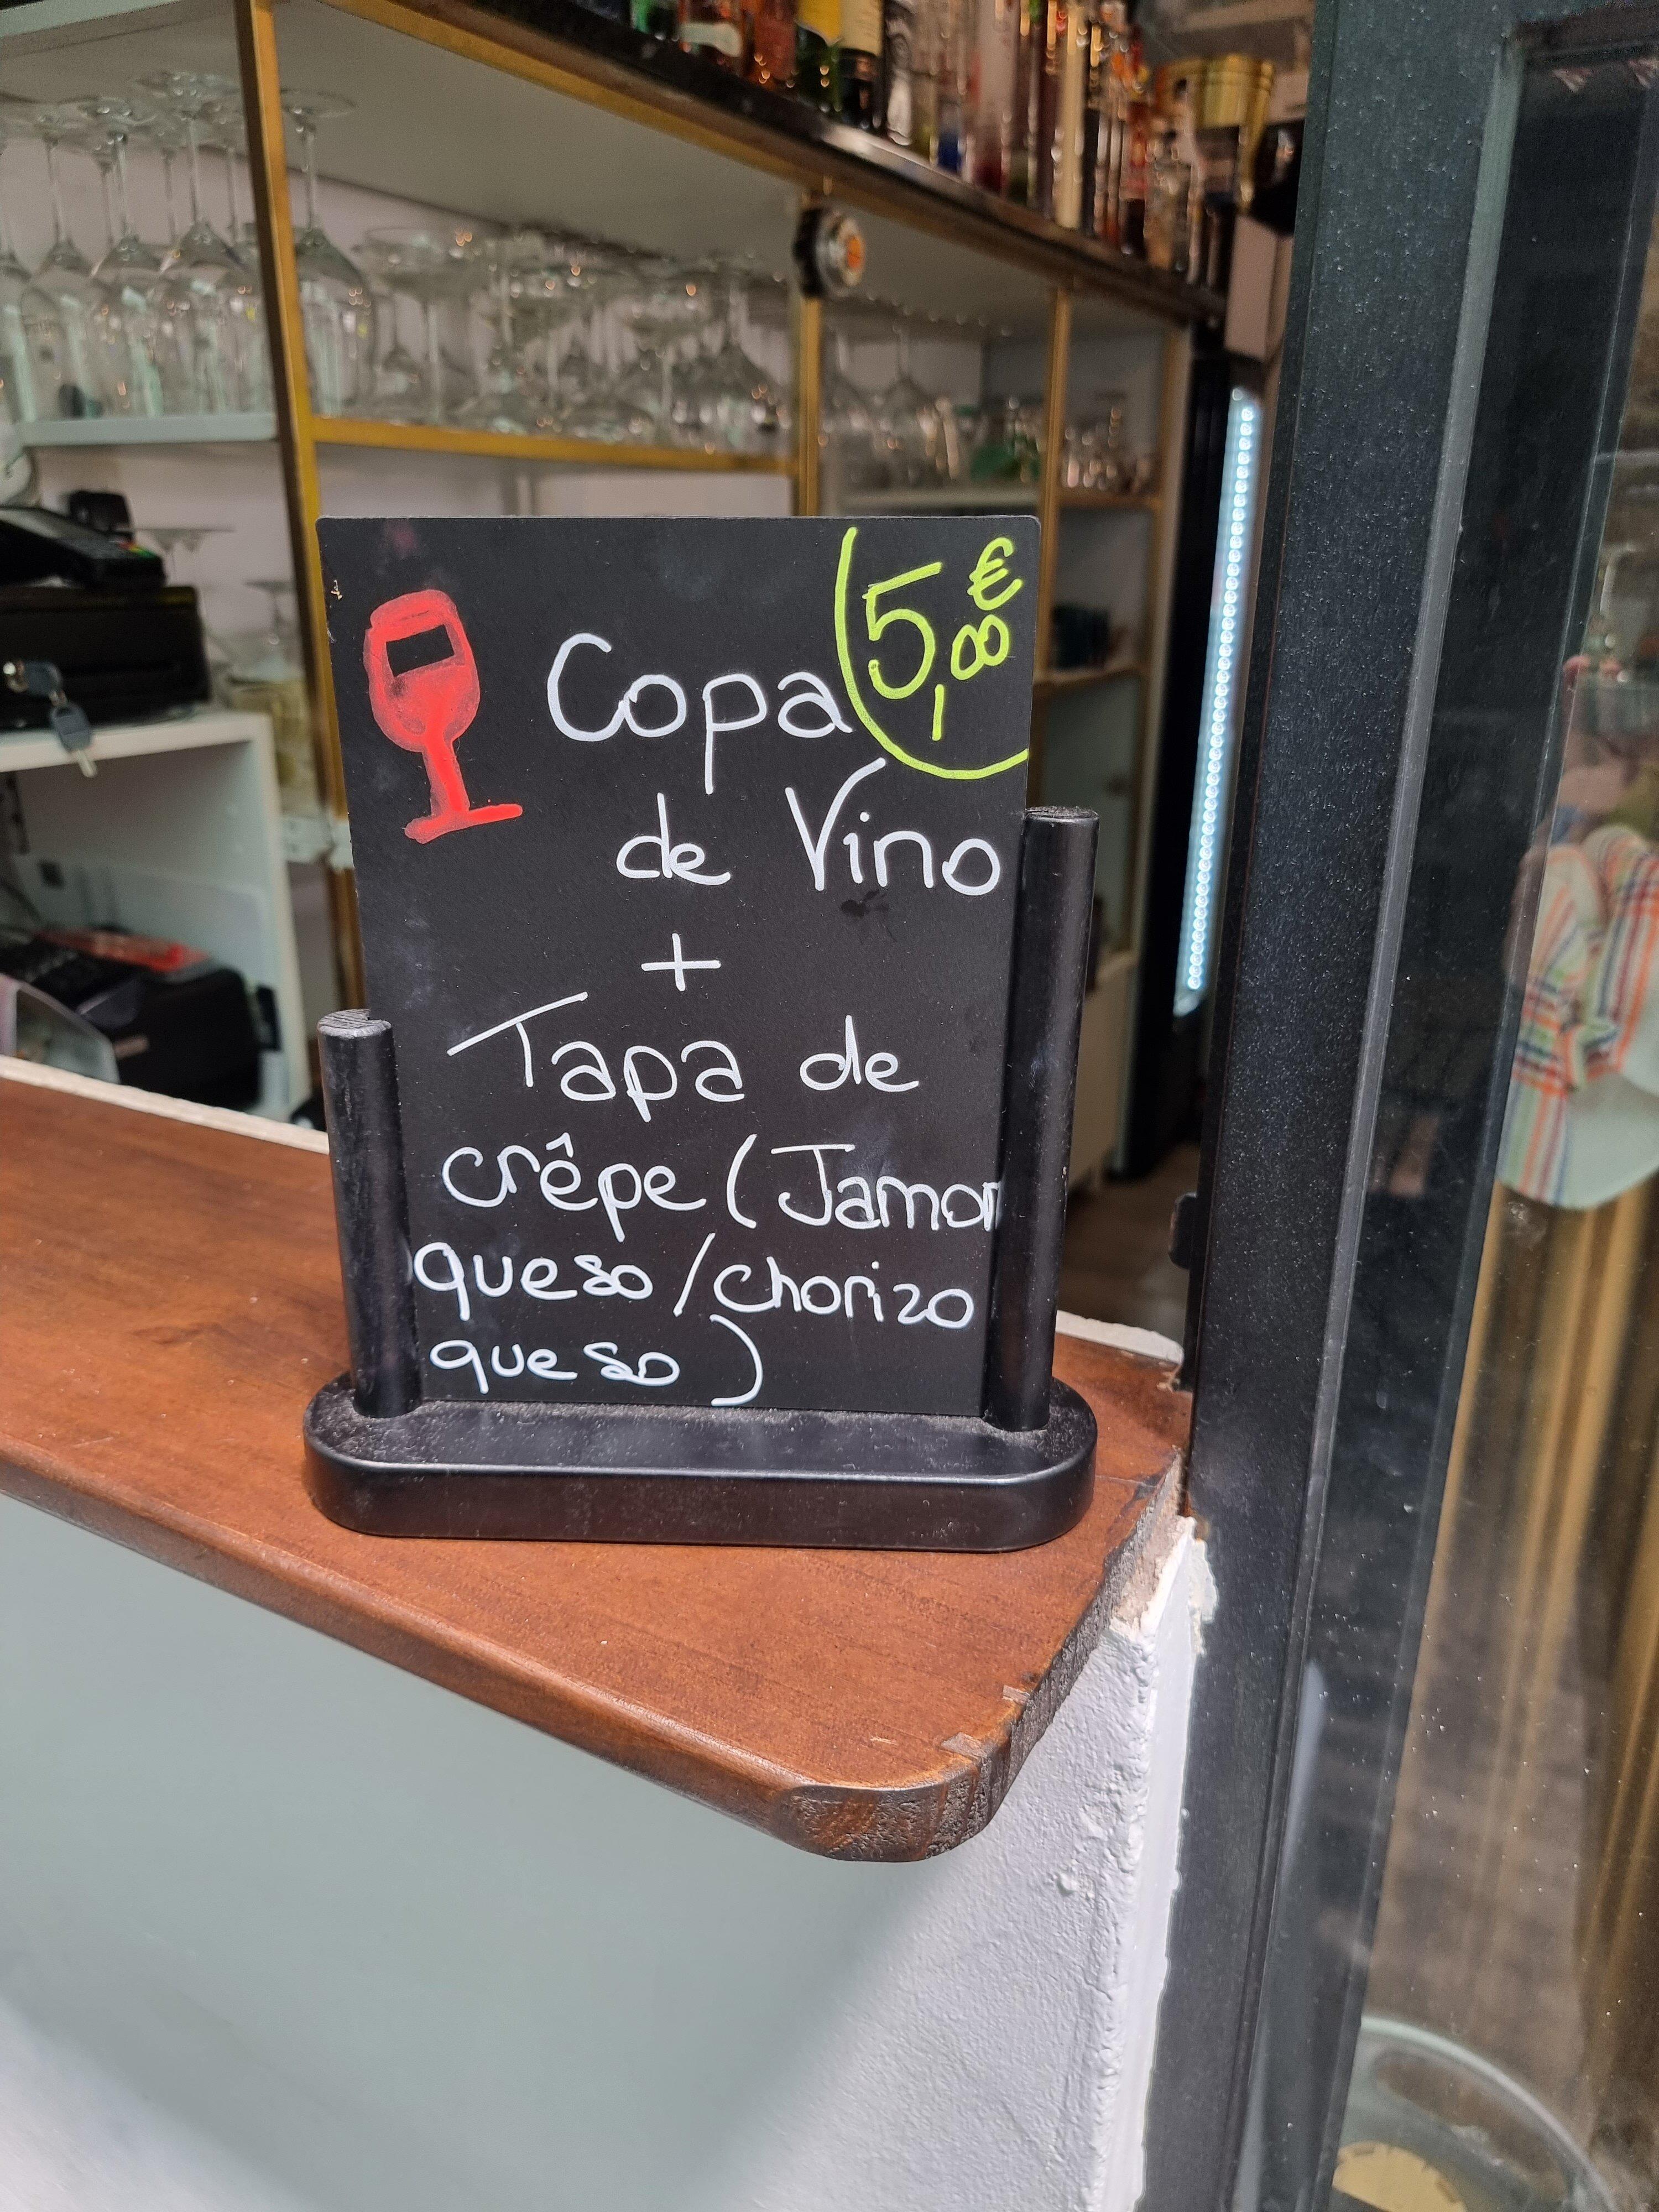 5,00 €
Copa
de Vino
+
Tapa de
crêpe (Jamon
queso / chorizo
queso)